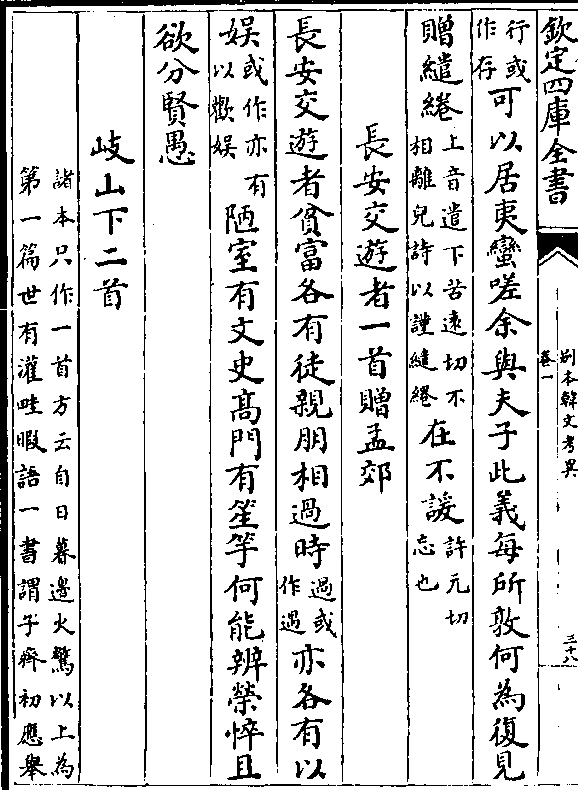 欽定四庫全書
别本韓文考異
卷一
三十八
行或作存可以居夷蠻嗟余與夫子此義每所敦何為復見
贈繾綣上音遣下苦遠切不相離皃詩以謹繾綣在不諼許元切忘也
長安交遊者一首贈孟郊
長安交遊者貧富各有徒親朋相過時過或作遇亦各有以
娱或作亦有以歡娱陋室有文史髙門有笙竽何能辨榮悴且
欲分賢愚
岐山下二首
諸本只作一首方云自日暮邊火驚以上為
第一篇世有灌畦暇語一書謂子齊初應舉